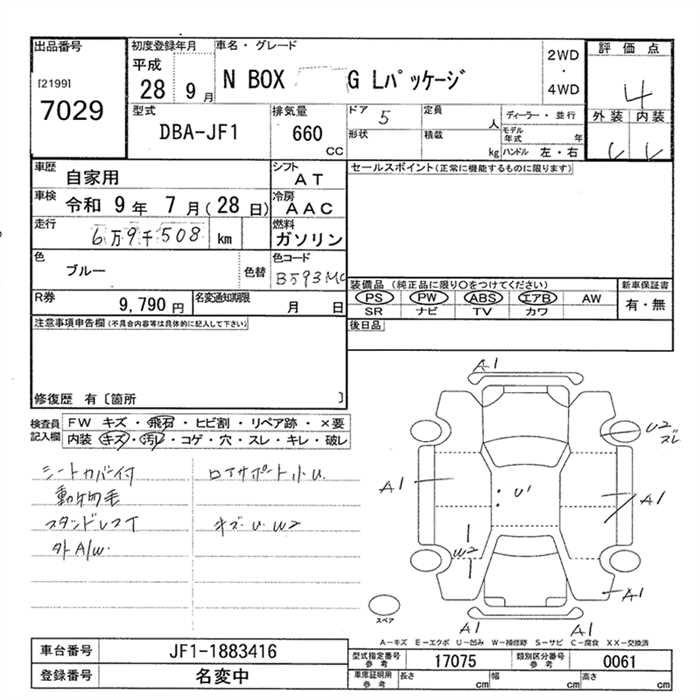 出品番号
[2199]
7029
初度登録年月
平成
28 9月
車名・グレード
N BOX G Lパッケージ
2WD
・
4WD
評価点
4
外装 内装
型式
DBA-JF1
排気量
660
CC
ドア 5
形状
定員
人
積載
kg
ディーラー・並行
モデル年式 年
ハンドル 左・右
車歴 自家用
シフト AT
車検 令和 9年 7月(28日)
冷房 AAC
走行 6万9千508 km
燃料 ガソリン
色 ブルー
色替
色コード
B593MC
R券 9,790円
名変通知期限 月 日
セールスポイント(正常に機能するものに限ります)
装備品(純正品に限り○をつけてください)
新車保証書
PS PW ABS エアB AW
有・無
SR ナビ TV カワ
後日品
注意事項申告欄(不具合内容等は具体的に記入して下さい)
修復歴 有〔箇所 〕
検査員記入欄
FW キズ・飛石・ヒビ割・リペア跡・×要
内装 キズ・汚レ・コゲ・穴・スレ・キレ・破レ
シートカバー付
動物毛
外A/W.
ロアサポート小U.
キズ・U・W2
A1
U2
ズレ
A1
U1
A1
W2
A1
A1
A1
スペア
A-キズ E-エクボ U-凹み W-補修跡 S-サビ C-腐食 XX-交換済
車台番号 JF1-1883416
登録番号 名変中
型式指定番号参考 17075
類別区分番号参考 0061
車庫証明用参考
長さ cm
幅 cm
高さ cm